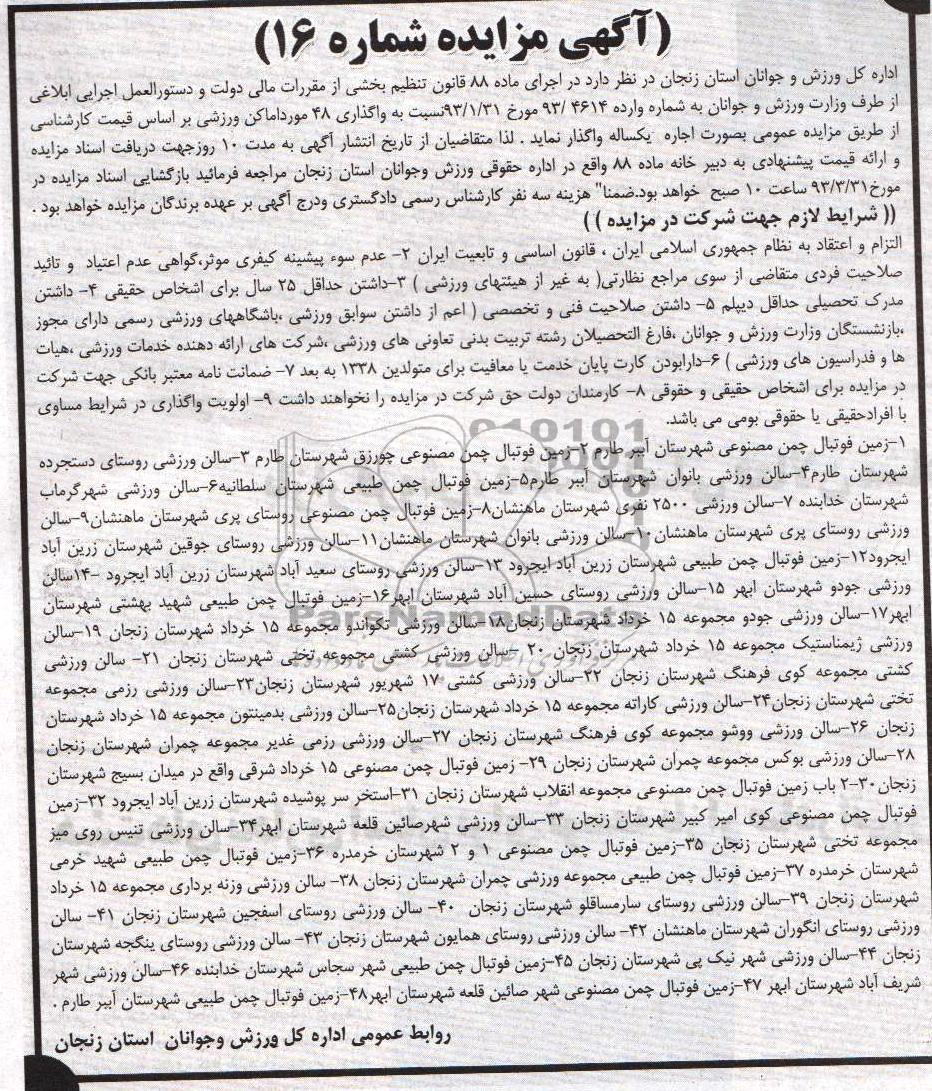 (آگهی مزایده شماره ۱۶)
اداره کل ورزش و جوانان استان زنجان در نظر دارد در اجرای ماده ۸۸ قانون تنظیم بخشی از مقررات مالی دولت و دستورالعمل اجرایی ابلاغی
از طرف وزارت ورزش و جوانان به شماره وارده ۴۶۱۴ /۹۳ مورخ ۹۳/۱/۳۱نسبت به واگذاری ۴۸ مورداماکن ورزشی بر اساس قیمت کارشناسی
از طریق مزایده عمومی بصورت اجاره یکساله واگذار نماید . لذا متقاضیان از تاریخ انتشار آگهی به مدت ۱۰ روزجهت دریافت اسناد مزایده
و ارائه قیمت پیشنهادی به دبیر خانه ماده ۸۸ واقع در اداره حقوقی ورزش وجوانان استان زنجان مراجعه فرمائید بازگشایی اسناد مزایده در
مورخ۹۳/۳/۳۱ ساعت ۱۰ صبح خواهد بود.ضمنا" هزینه سه نفر کارشناس رسمی دادگستری ودرج آگهی بر عهده برندگان مزایده خواهد بود .
(( شرایط لازم جهت شرکت در مزایده ))
التزام و اعتقاد به نظام جمهوری اسلامی ایران ، قانون اساسی و تابعیت ایران ۲- عدم سوء پیشینه کیفری موثر،گواهی عدم اعتیاد و تائید
صلاحیت فردی متقاضی از سوی مراجع نظارتی( به غیر از هیئتهای ورزشی ) ۳-داشتن حداقل ۲۵ سال برای اشخاص حقیقی ۴- داشتن
مدرک تحصیلی حداقل دیپلم ۵- داشتن صلاحیت فنی و تخصصی ( اعم از داشتن سوابق ورزشی ،باشگاههای ورزشی رسمی دارای مجوز
،بازنشستگان وزارت ورزش و جوانان ،فارغ التحصیلان رشته تربیت بدنی تعاونی های ورزشی ،شرکت های ارائه دهنده خدمات ورزشی ،هیات
ها و فدراسیون های ورزشی ) ۶-دارابودن کارت پایان خدمت یا معافیت برای متولدین ۱۳۳۸ به بعد ۷- ضمانت نامه معتبر بانکی جهت شرکت
در مزایده برای اشخاص حقیقی و حقوقی ۸- کارمندان دولت حق شرکت در مزایده را نخواهند داشت ۹- اولویت واگذاری در شرایط مساوی
با افرادحقیقی یا حقوقی بومی می باشد.
۱-زمین فوتبال چمن مصنوعی شهرستان آببر طارم ۲-زمین فوتبال چمن مصنوعی چورزق شهرستان طارم ۳-سالن ورزشی روستای دستجرده
شهرستان طارم۴-سالن ورزشی بانوان شهرستان آببر طارم۵-زمین فوتبال چمن طبیعی شهرستان سلطانیه۶-سالن ورزشی شهرگرماب
شهرستان خدابنده ۷-سالن ورزشی ۲۵۰۰ نفری شهرستان ماهنشان۸-زمین فوتبال چمن مصنوعی روستای پری شهرستان ماهنشان۹-سالن
ورزشی روستای پری شهرستان ماهنشان۱۰-سالن ورزشی بانوان شهرستان ماهنشان۱۱-سالن ورزشی روستای جوقین شهرستان زرین آباد
ایجرود۱۲-زمین فوتبال چمن طبیعی شهرستان زرین آباد ایجرود ۱۳-سالن ورزشی روستای سعید آباد شهرستان زرین آباد ایجرود -۱۴سالن
ورزشی جودو شهرستان ابهر ۱۵-سالن ورزشی روستای حسین آباد شهرستان ابهر۱۶-زمین فوتبال چمن طبیعی شهید بهشتی شهرستان
ابهر۱۷-سالن ورزشی جودو مجموعه ۱۵ خرداد شهرستان زنجان۱۸-سالن ورزشی تکواندو مجموعه ۱۵ خرداد شهرستان زنجان ۱۹-سالن
ورزشی ژیمناستیک مجموعه ۱۵ خرداد شهرستان زنجان ۲۰ -سالن ورزشی کشتی مجموعه تختی شهرستان زنجان ۲۱- سالن ورزشی
کشتی مجموعه کوی فرهنگ شهرستان زنجان ۲۲-سالن ورزشی کشتی ۱۷ شهریور شهرستان زنجان۲۳-سالن ورزشی رزمی مجموعه
تختی شهرستان زنجان۲۴-سالن ورزشی کاراته مجموعه ۱۵ خرداد شهرستان زنجان۲۵-سالن ورزشی بدمینتون مجموعه ۱۵ خرداد شهرستان
زنجان ۲۶-سالن ورزشی ووشو مجموعه کوی فرهنگ شهرستان زنجان ۲۷-سالن ورزشی رزمی غدیر مجموعه چمران شهرستان زنجان
۲۸-سالن ورزشی بوکس مجموعه چمران شهرستان زنجان ۲۹- زمین فوتبال چمن مصنوعی ۱۵ خرداد شرقی واقع در میدان بسیج شهرستان
زنجان ۳۰-۲ باب زمین فوتبال چمن مصنوعی مجموعه انقلاب شهرستان زنجان ۳۱-استخر سر پوشیده شهرستان زرین آباد ایجرود ۳۲-زمین
فوتبال چمن مصنوعی کوی امیر کبیر شهرستان زنجان ۳۳-سالن ورزشی شهرصائین قلعه شهرستان ابهر۳۴-سالن ورزشی تنیس روی میز
مجموعه تختی شهرستان زنجان ۳۵-زمین فوتبال چمن مصنوعی ۱ و ۲ شهرستان خرمدره ۳۶-زمین فوتبال چمن طبیعی شهید خرمی
شهرستان خرمدره ۳۷-زمین فوتبال چمن طبیعی مجموعه ورزشی چمران شهرستان زنجان ۳۸- سالن ورزشی وزنه برداری مجموعه ۱۵ خرداد
شهرستان زنجان ۳۹-سالن ورزشی روستای سارمساقلو شهرستان زنجان ۴۰- سالن ورزشی روستای اسفجین شهرستان زنجان ۴۱- سالن
ورزشی روستای انگوران شهرستان ماهنشان ۴۲- سالن ورزشی روستای همایون شهرستان زنجان ۴۳- سالن ورزشی روستای ینگجه شهرستان
زنجان ۴۴-سالن ورزشی شهر نیک پی شهرستان زنجان ۴۵-زمین فوتبال چمن طبیعی شهر سجاس شهرستان خدابنده ۴۶-سالن ورزشی شهر
شریف آباد شهرستان ابهر ۴۷-زمین فوتبال چمن مصنوعی شهر صائین قلعه شهرستان ابهر۴۸-زمین فوتبال چمن طبیعی شهرستان آببر طارم .
روابط عمومی اداره کل ورزش وجوانان استان زنجان
ParsNamadData